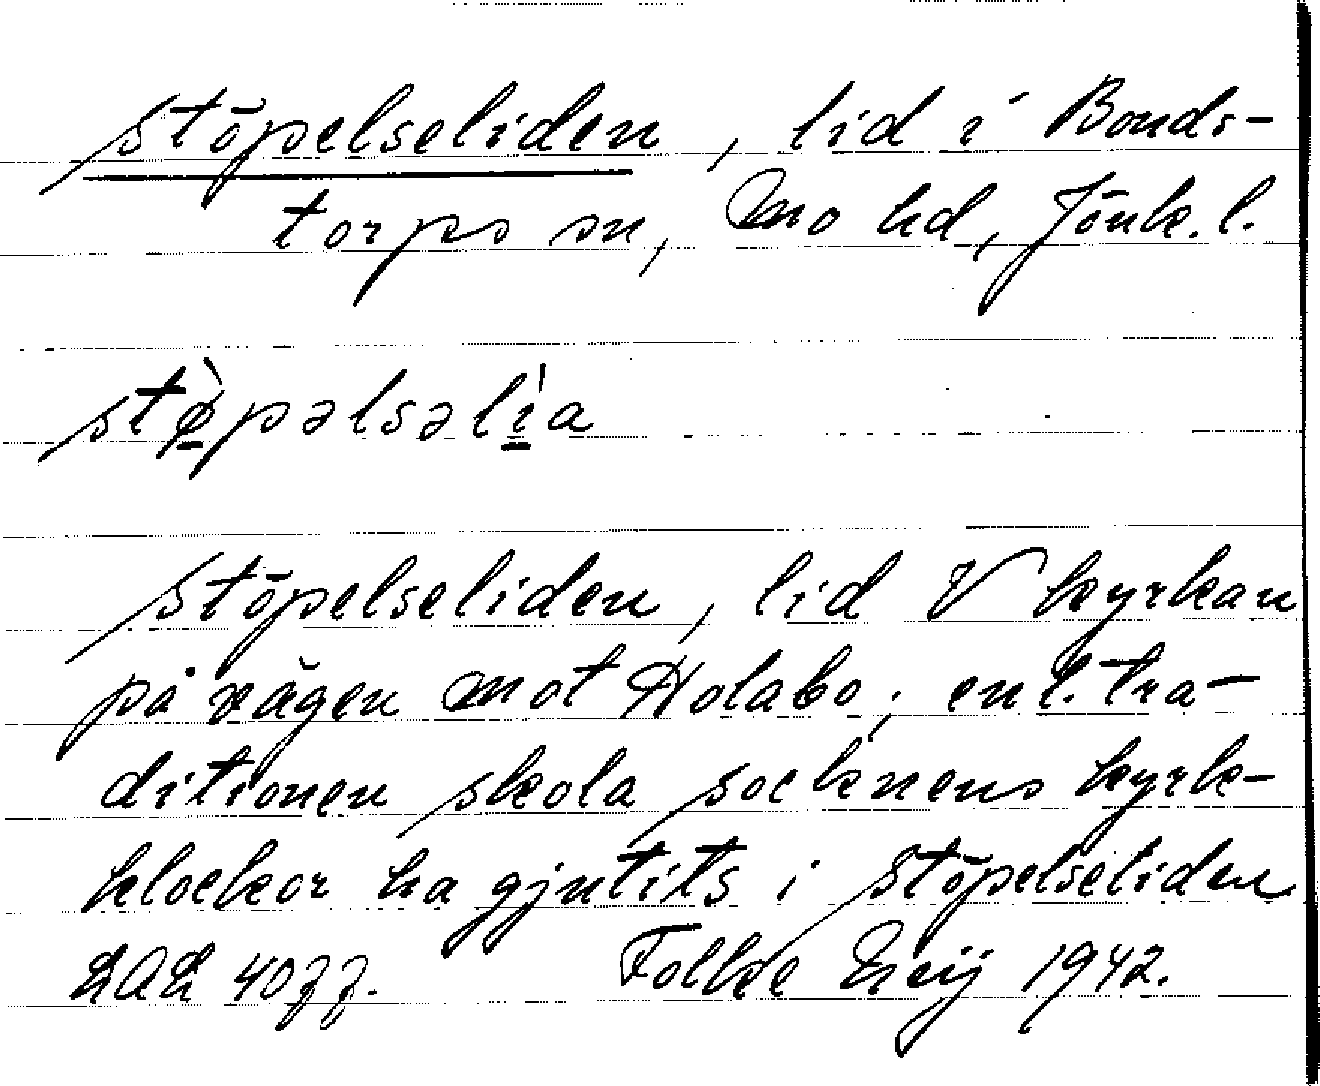 Stöpelseliden, lid i Bonds-
torps sn, Mo hd, Jönk. l.
stø̱̀pəlsəlı̱̀a
Stöpelseliden, lid V kyrkan
på vägen mot Holabo; enl. tra-
ditionen skola socknens kyrk-
klockor ha gjutits i Stöpelseliden
40ff. Folke 1942.